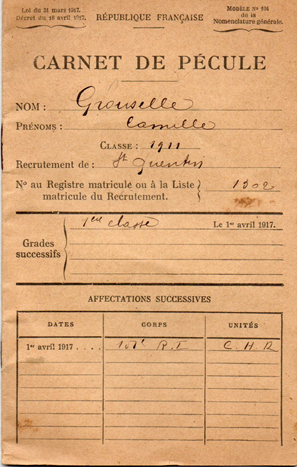 Loi du 31 mars 1917.
Décret du 18 avril 1917.
RÉPUBLIQUE FRANÇAISE
MODÈLE No 104
de la
Nomenclature générale.
CARNET DE PÉCULE
NOM : Grouselle
PRÉNOMS : Camille
CLASSE : 1911
Recrutement de : St Quentin
No au Registre matricule ou à la Liste
matricule du Recrutement.
1302
Grades
successifs
1ère classe
Le 1er avril 1917.
AFFECTATIONS SUCCESSIVES
DATES CORPS UNITÉS
1er avril 1917 .... R. I. C. H. R